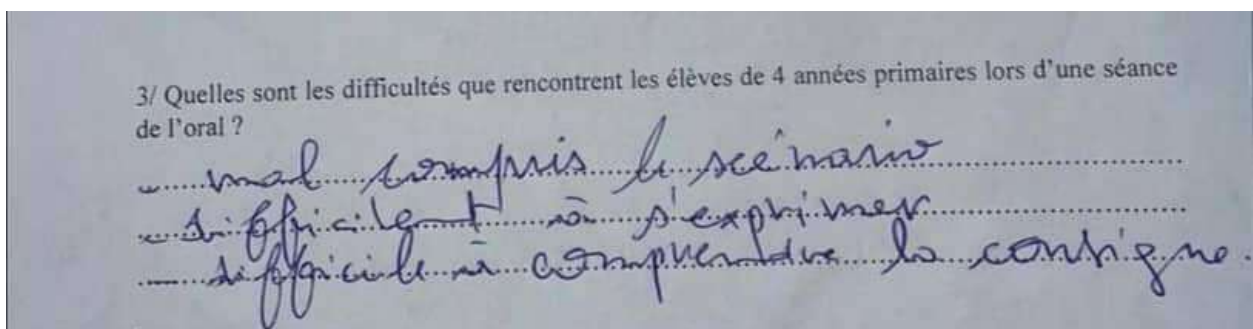 3/ Quelles sont les difficultés que rencontrent les élèves de 4 années primaires lors d'une séance
de l'oral ?
- mal compris le scénario
- difficilent à s'exprimer
- difficile à comprendre la consigne.